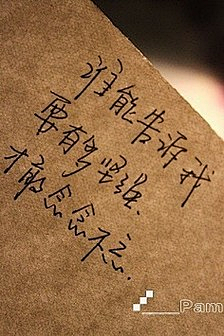 谁能告诉我
要有多坚强.
才敢念念不忘.
Pam